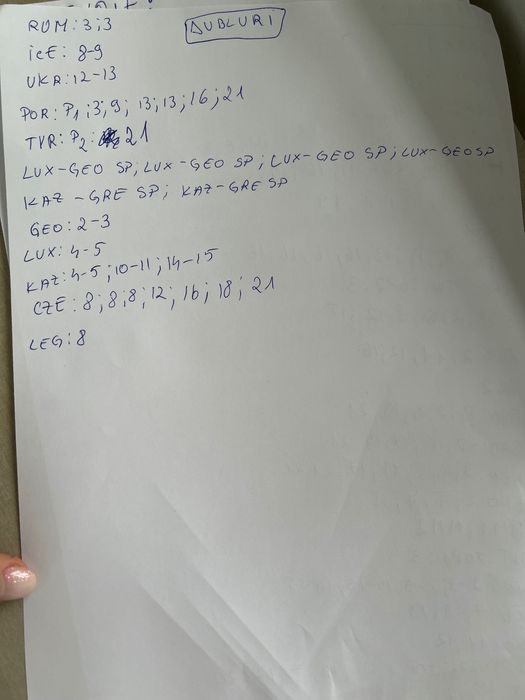 DUBLURI
ROM: 3;3
ICE: 8-9
UKR: 12-13
POR: P1; 3; 9; 13; 13; 16; 21
TUR: P2: 21
LUX-GEO SP; LUX-GEO SP; LUX-GEO SP; LUX-GEO SP
KAZ-GRE SP; KAZ-GRE SP
GEO: 2-3
LUX: 4-5
KAZ: 4-5; 10-11; 14-15
CZE: 8; 8; 8; 12; 16; 18; 21
LEG: 8